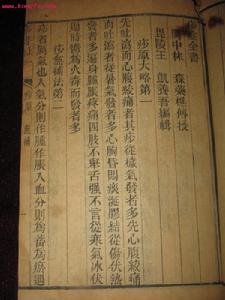 全書
中林 森藥樵傳授
毘陵王 凱養吾編輯
痧原大略第一
先吐瀉而心腹絞痛者其痧從穢氣發者多先心腹絞痛
而吐瀉者從暑氣發者多心胸昏悶痰涎膠結從傷伏熱
發者多遍身腫脹疼痛四肢不舉舌强不言從寒氣冰伏
過時鬱為火毒而發者多
痧無補法第二
痧者厲氣也入氣分則作腫作脹入血分則為畜為瘀遇